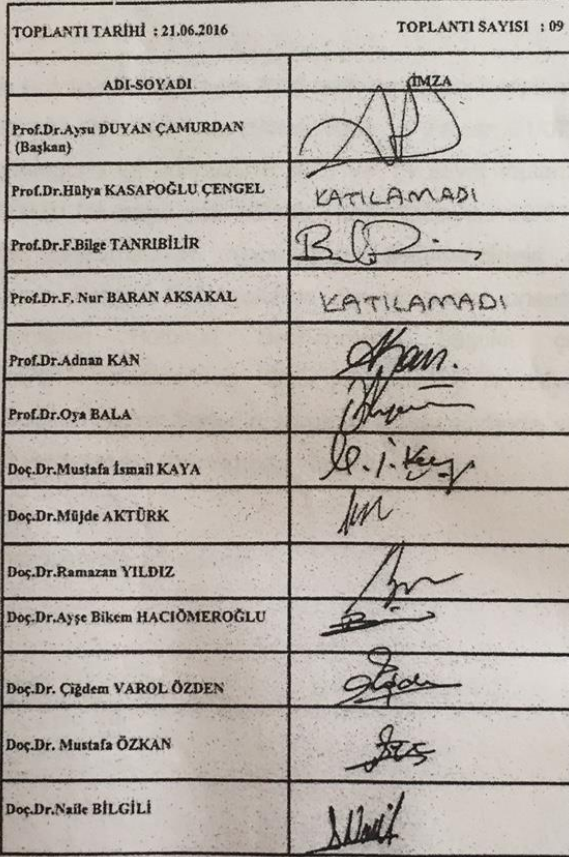 TOPLANTI TARİHİ : 21.06.2016 TOPLANTI SAYISI : 09
ADI-SOYADI İMZA
Prof.Dr.Aysu DUYAN ÇAMURDAN
(Başkan)
Prof.Dr.Hülya KASAPOĞLU ÇENGEL KATILAMADI
Prof.Dr.F.Bilge TANRIBİLİR
Prof.Dr.F. Nur BARAN AKSAKAL KATILAMADI
Prof.Dr.Adnan KAN
Prof.Dr.Oya BALA
Doç.Dr.Mustafa İsmail KAYA
Doç.Dr.Müjde AKTÜRK
Doç.Dr.Ramazan YILDIZ
Doç.Dr.Ayşe Bikem HACIÖMEROĞLU
Doç.Dr. Çiğdem VAROL ÖZDEN
Doç.Dr. Mustafa ÖZKAN
Doç.Dr.Naile BİLGİLİ